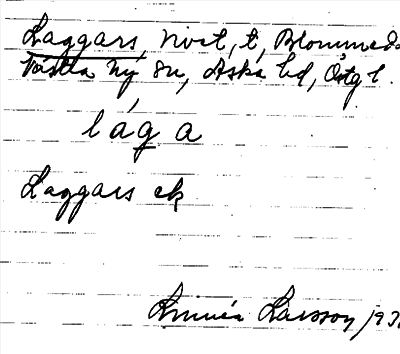 Laggars, Nivet, t, Blommeda
Västra Ny sn, Aska hd, Östgl.
l á g a
Laggars ek
Linnéa Larsson, 193